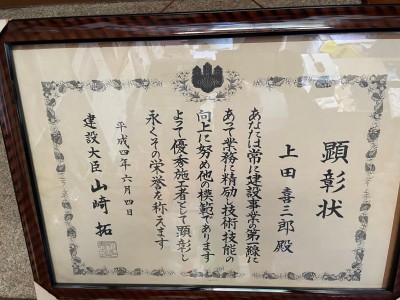 顕彰状
上田喜三郎殿
あなたは常に建設事業の第一線に
あって業務に精励し技術技能の
向上に努め他の模範であります
よって優秀施工者として顕彰し
永くその栄誉を称えます
平成四年六月四日
建設大臣 山崎拓